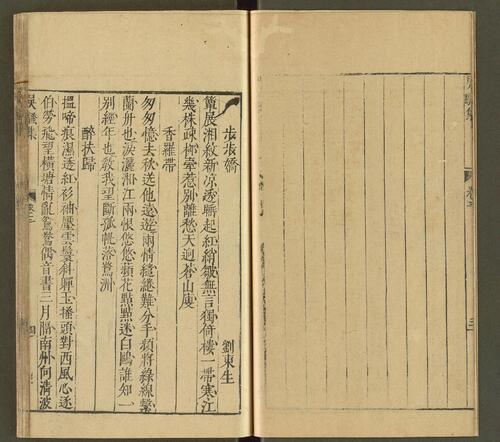 步步嬌
劉東生
簟展湘紋新凉透睡起紅綃皺無言獨倚樓一帶寒江
幾株疎柳牽惹別離愁天迥莽山廋
香羅帶
匆匆憶去秋送他遠遊兩情繾綣難分手頻將綠線繫
蘭舟也淚灑湘江兩恨悠悠蘋花點點迷白鷗誰知一
別經年也教我望斷孤帆落鷺洲
醉扶歸
搵啼痕濕透紅衫袖壓雲鬟斜軃玉搔頭對西風心逐
伯勞飛望橫塘情亂鴛鴦偶音書三月隔南州何清波
集
卷三
四
卷
三